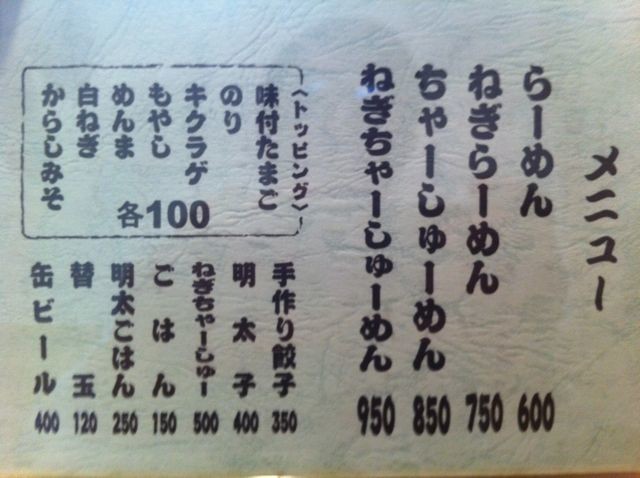 メニュー
らーめん 600
ねぎらーめん 750
ちゃーしゅーめん 850
ねぎちゃーしゅーめん 950
〈トッピング〉
味付たまご
のり
キクラゲ
もやし
めんま
白ねぎ
からしみそ
各100
手作り餃子 350
明太子 400
ねぎちゃーしゅー 500
ごはん 150
明太ごはん 250
替玉 120
缶ビール 400